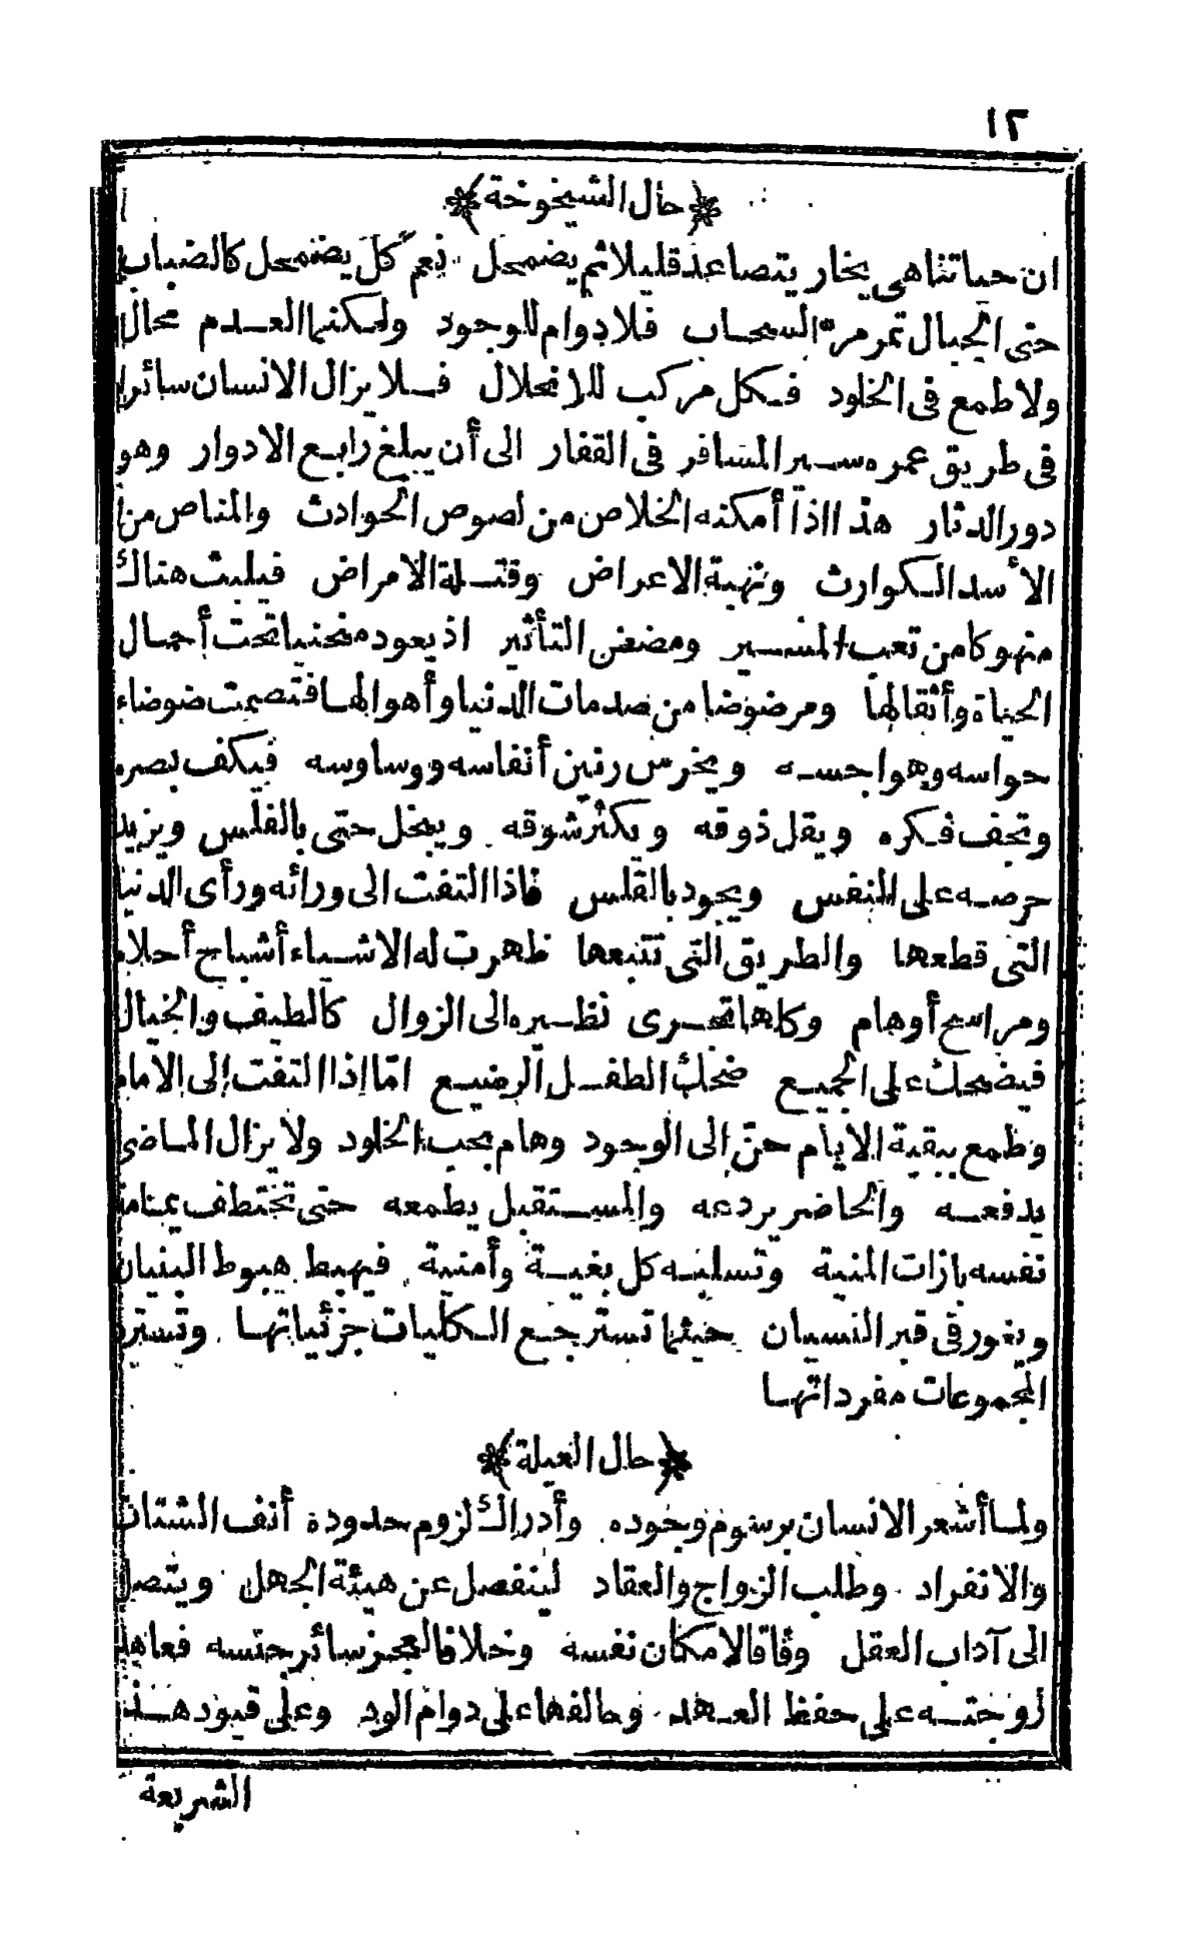 ١٢
﴿حال الشيخوخة﴾
ان حياتنا هى بخار يتصاعد قليلا ثم يضمحل نعم كل يضمحل كالضباب
حتى الجبال تمر مر السحاب فلا دوام للوجود ولكنما العدم محال
ولا طمع فى الخلود فكل مركب للانحلال فلا يزال الانسان سائرا
فى طريق عمره سير المسافر فى القفار الى أن يبلغ رابع الادوار وهو
دور الدثار هذا اذا أمكنه الخلاص من لصوص الحوادث والمناص من
الأسد الكوارث ونهبة الاعراض وقتلة الامراض فيلبث هناك
منهوكا من تعب المسير ومضغن التأثير اذ يعود منحنيا تحت أحمال
الحياة وأثقالها ومرضوضا من صدمات الدنيا وأهوالها فتصمت ضوضاء
حواسه وهواجسه ويخرس رنين أنفاسه ووساوسه فيكف بصره
وتجف فكره ويقل ذوقه ويكثر شوقه ويبخل حتى بالفلس ويزيد
حرصه على النفس ويجود بالقلس فاذا التفت الى ورائه ورأى الدنيا
التى قطعها والطريق التى تتبعها ظهرت له الاشياء أشباح أحلام
ومراسح أوهام وكلها تجرى نظيره الى الزوال كالطيف والخيال
فيضحك على الجميع ضحك الطفل الرضيع امّا إذا التفت إلى الامام
وطمع ببقية الأيام حنّ إلى الوجود وهام بحب الخلود ولا يزال الماضى
يدفعه والحاضر يردعه والمستقبل يطمعه حتى تختطف يمامة
نفسه بازات المنية وتسلبه كل بغية وأمنية فيهبط هبوط البنيان
ويغور فى قبر النسيان حيثما تسترجع الكليات جزئياتها وتسترد
المجموعات مفرداتها
﴿حال العيلة﴾
ولما أشعر الانسان برسوم وجوده وأدرك لزوم حدوده أنف الشتات
والانفراد وطلب الزواج والعقاد لينفصل عن هيئة الجهل ويتصل
الى آداب العقل وفاقا لامكان نفسه وخلافا لعجز سائر جنسه فعاهد
زوجته على حفظ العهد وحالفها على دوام الود وعلى قيود هذه
الشريعة